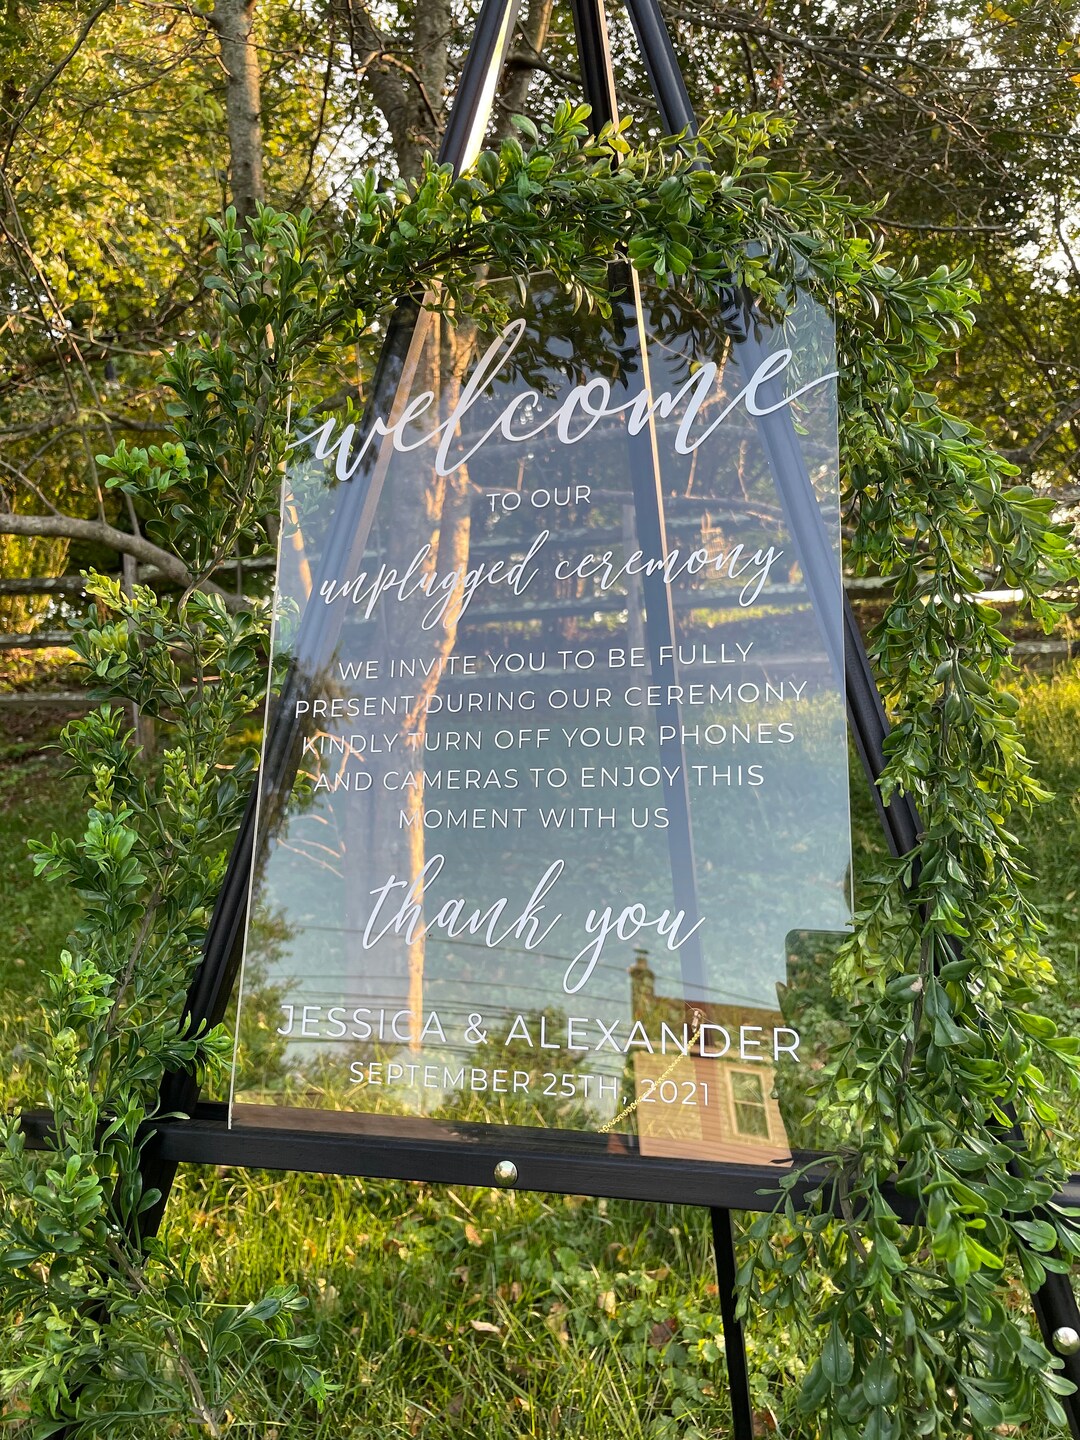 welcome
TO OUR
unplugged ceremony
WE INVITE YOU TO BE FULLY
PRESENT DURING OUR CEREMONY
KINDLY TURN OFF YOUR PHONES
AND CAMERAS TO ENJOY THIS
MOMENT WITH US
thank you
JESSICA & ALEXANDER
SEPTEMBER 25TH, 2021